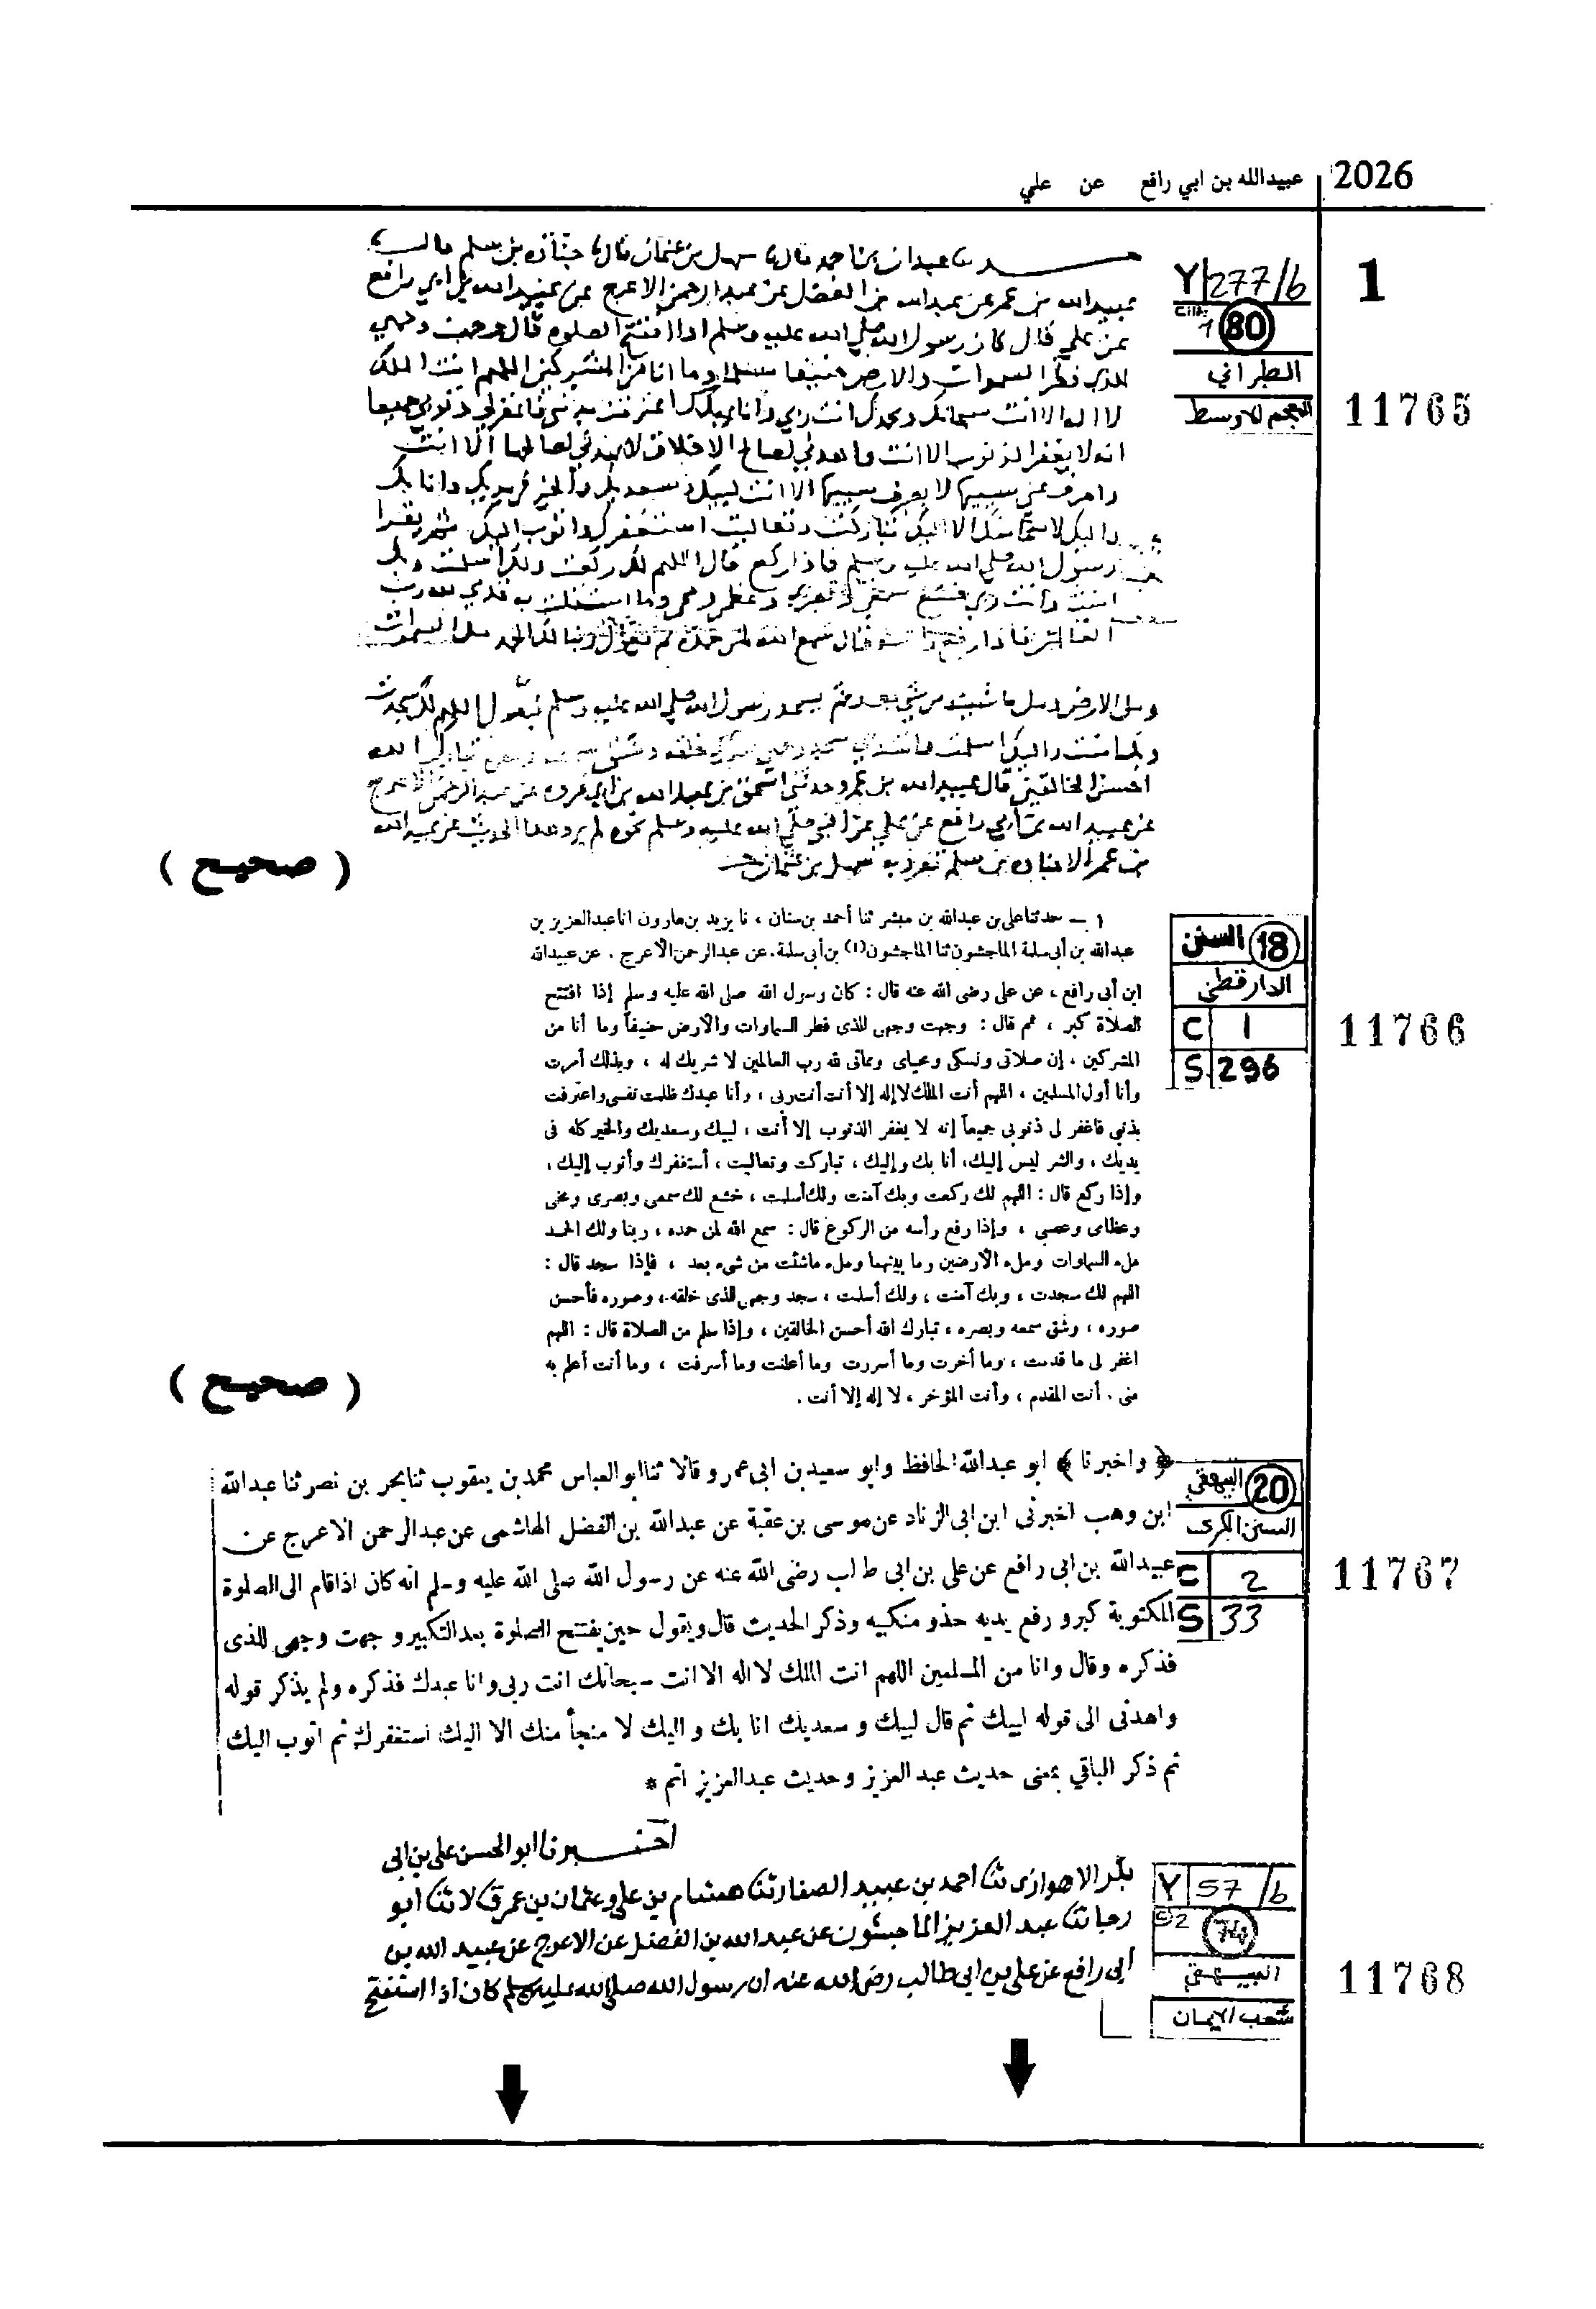 2026
عبيدالله بن ابي رافع عن علي
1
Y 277/b
Cilt 1 80
الطبراني
المعجم الاوسط
11765
عبدان بن احمد قال نا سهل بن عثمان قال نا جنادة بن سلم قال
عبيدالله بن عمر عن عبدالله بن الفضل عن عبد الرحمن الاعرج عن عبيدالله بن ابي رافع
عن علي قال كان رسول الله صلى الله عليه وسلم اذا افتتح الصلوه قال وجهت وجهي
للذي فطر السموات والارض حنيفا مسلما وما انا من المشركين اللهم انت الملك
لا اله الا انت سبحانك وبحمدك انت ربي وانا عبدك اعترفت بذنبي فاغفر لي ذنوبي جميعا
انه لا يغفر الذنوب الا انت واهدني لصالح الاخلاق لا يهدي لصالحها الا انت
واصرف عني سييها لا يصرف سييها الا انت لبيك وسعديك والخير في يديك وانا بك
واليك لا الا اليك تباركت وتعاليت استغفرك واتوب اليك ثم يقرا
رسول الله صلى الله عليه وسلم فاذا ركع قال اللهم لك ركعت ولك اسلمت وبك
امنت وانت ربي خشع سمعي وبصري وما استقلت به قدمي لله رب
العالمين فاذا رفع راسه قال سمع الله لمن حمده ثم يقول ربنا لك الحمد مل السموات
ومل الارض ومل ما شيت من شي بعد ثم يسجد رسول الله صلى الله عليه وسلم فيقول اللهم لك سجدت
وبك امنت ولك اسلمت وانت ربي سجد وجهي للذي خلقه وشق تبارك الله
احسن الخالقين قال عبيدالله بن عمر وحدثني اسحق بن عبدالله بن ابي فروه عن عبد الرحمن الاعرج
عن عبيدالله بن ابي رافع عن علي عن النبي صلى الله عليه وسلم نحوه لم يرو هذا الحديث عن عبيدالله
بن عمر الا جناده بن سلم تفرد به سهل بن عثمان
( صحيح )
18 السنن
الدارقطني
C 1
S 296
11766
١ — حدثنا علي بن عبدالله بن مبشر ثنا أحمد بن سنان ، نا يزيد بن هارون انا عبدالعزيز بن
عبدالله بن أبى سلمة الماجشون ثنا الماجشون(١) بن أبى سلمة . عن عبدالرحمن الأعرج . عن عبيدالله
ابن أبى رافع ، عن على رضى الله عنه قال : كان رسول الله صلى الله عليه وسلم إذا افتتح
الصلاة كبر ، ثم قال : وجهت وجهى للذى فطر السماوات والأرض حنيفاً وما أنا من
المشركين ، إن صلاتى ونسكى ومحياى ومماتى لله رب العالمين لا شريك له ، وبذلك أمرت
وأنا أول المسلمين ، اللهم أنت الملك لا إله إلا أنت أنت ربى ، وأنا عبدك ظلمت نفسى واعترفت
بذنبى فاغفر لى ذنوبى جميعاً إنه لا يغفر الذنوب إلا أنت ، لبيك وسعديك والخير كله فى
يديك ، والشر ليس إليك، أنا بك وإليك ، تباركت وتعاليت ، أستغفرك وأتوب إليك ،
وإذا ركع قال : اللهم لك ركعت وبك آمنت ولك أسلمت ، خشع لك سمعى وبصرى ومخى
وعظامى وعصبى ، وإذا رفع رأسه من الركوع قال : سمع الله لمن حمده ، ربنا ولك الحمد
ملء السماوات وملء الأرضين وما بينهما وملء ماشئت من شىء بعد ، فإذا سجد قال :
اللهم لك سجدت ، وبك آمنت ، ولك أسلمت ، سجد وجهى للذى خلقه ، وصوره فأحسن
صوره ، وشق سمعه وبصره ، تبارك الله أحسن الخالقين ، وإذا سلم من الصلاة قال : اللهم
اغفر لى ما قدمت ، وما أخرت وما أسررت وما أعلنت وما أسرفت ، وما أنت أعلم به
منى . أنت المقدم ، وأنت المؤخر ، لا إله إلا أنت .
( صحيح )
20 البيهقي
السنن الكبرى
C 2
S 33
11767
﴿ واخبرنا ﴾ ابو عبدالله الحافظ وابو سعيد بن ابى عمرو قالا ثنا ابو العباس محمد بن يعقوب ثنا بحر بن نصر ثنا عبدالله
ابن وهب اخبرنى ابن ابى الزناد عن موسى بن عقبة عن عبدالله بن الفضل الهاشمى عن عبد الرحمن الاعرج عن
عبيدالله بن ابى رافع عن على بن ابى طالب رضى الله عنه عن رسول الله صلى الله عليه وسلم انه كان اذا قام الى الصلوة
المكتوبة كبر و رفع يديه حذو منكبيه وذكر الحديث قال ويقول حين يفتتح الصلوة بعد التكبير وجهت وجهى للذى
فذكره وقال وانا من المسلمين اللهم انت الملك لا اله الا انت سبحانك انت ربى وانا عبدك فذكره ولم يذكر قوله
واهدنى الى قوله لبيك ثم قال لبيك و سعديك انا بك و اليك لا منجأ منك الا اليك استغفرك ثم اتوب اليك
ثم ذكر الباقي بمعنى حديث عبد العزيز وحديث عبدالعزيز اتم *
Y 57/b
74
البيهقي
شعب الايمان
11768
اخبرنا ابو الحسن على بن ابى
بكر الاهوازى ثنا احمد بن عبيد الصفار ثنا هشام بن على وعثمان بن عمر قالا ثنا ابو
رجا ثنا عبد العزيز الماجشون عن عبدالله بن الفضل عن الاعرج عن عبيد الله بن
ابى رافع عن على بن ابى طالب رضى الله عنه ان رسول الله صلى الله عليه وسلم كان اذا استفتح